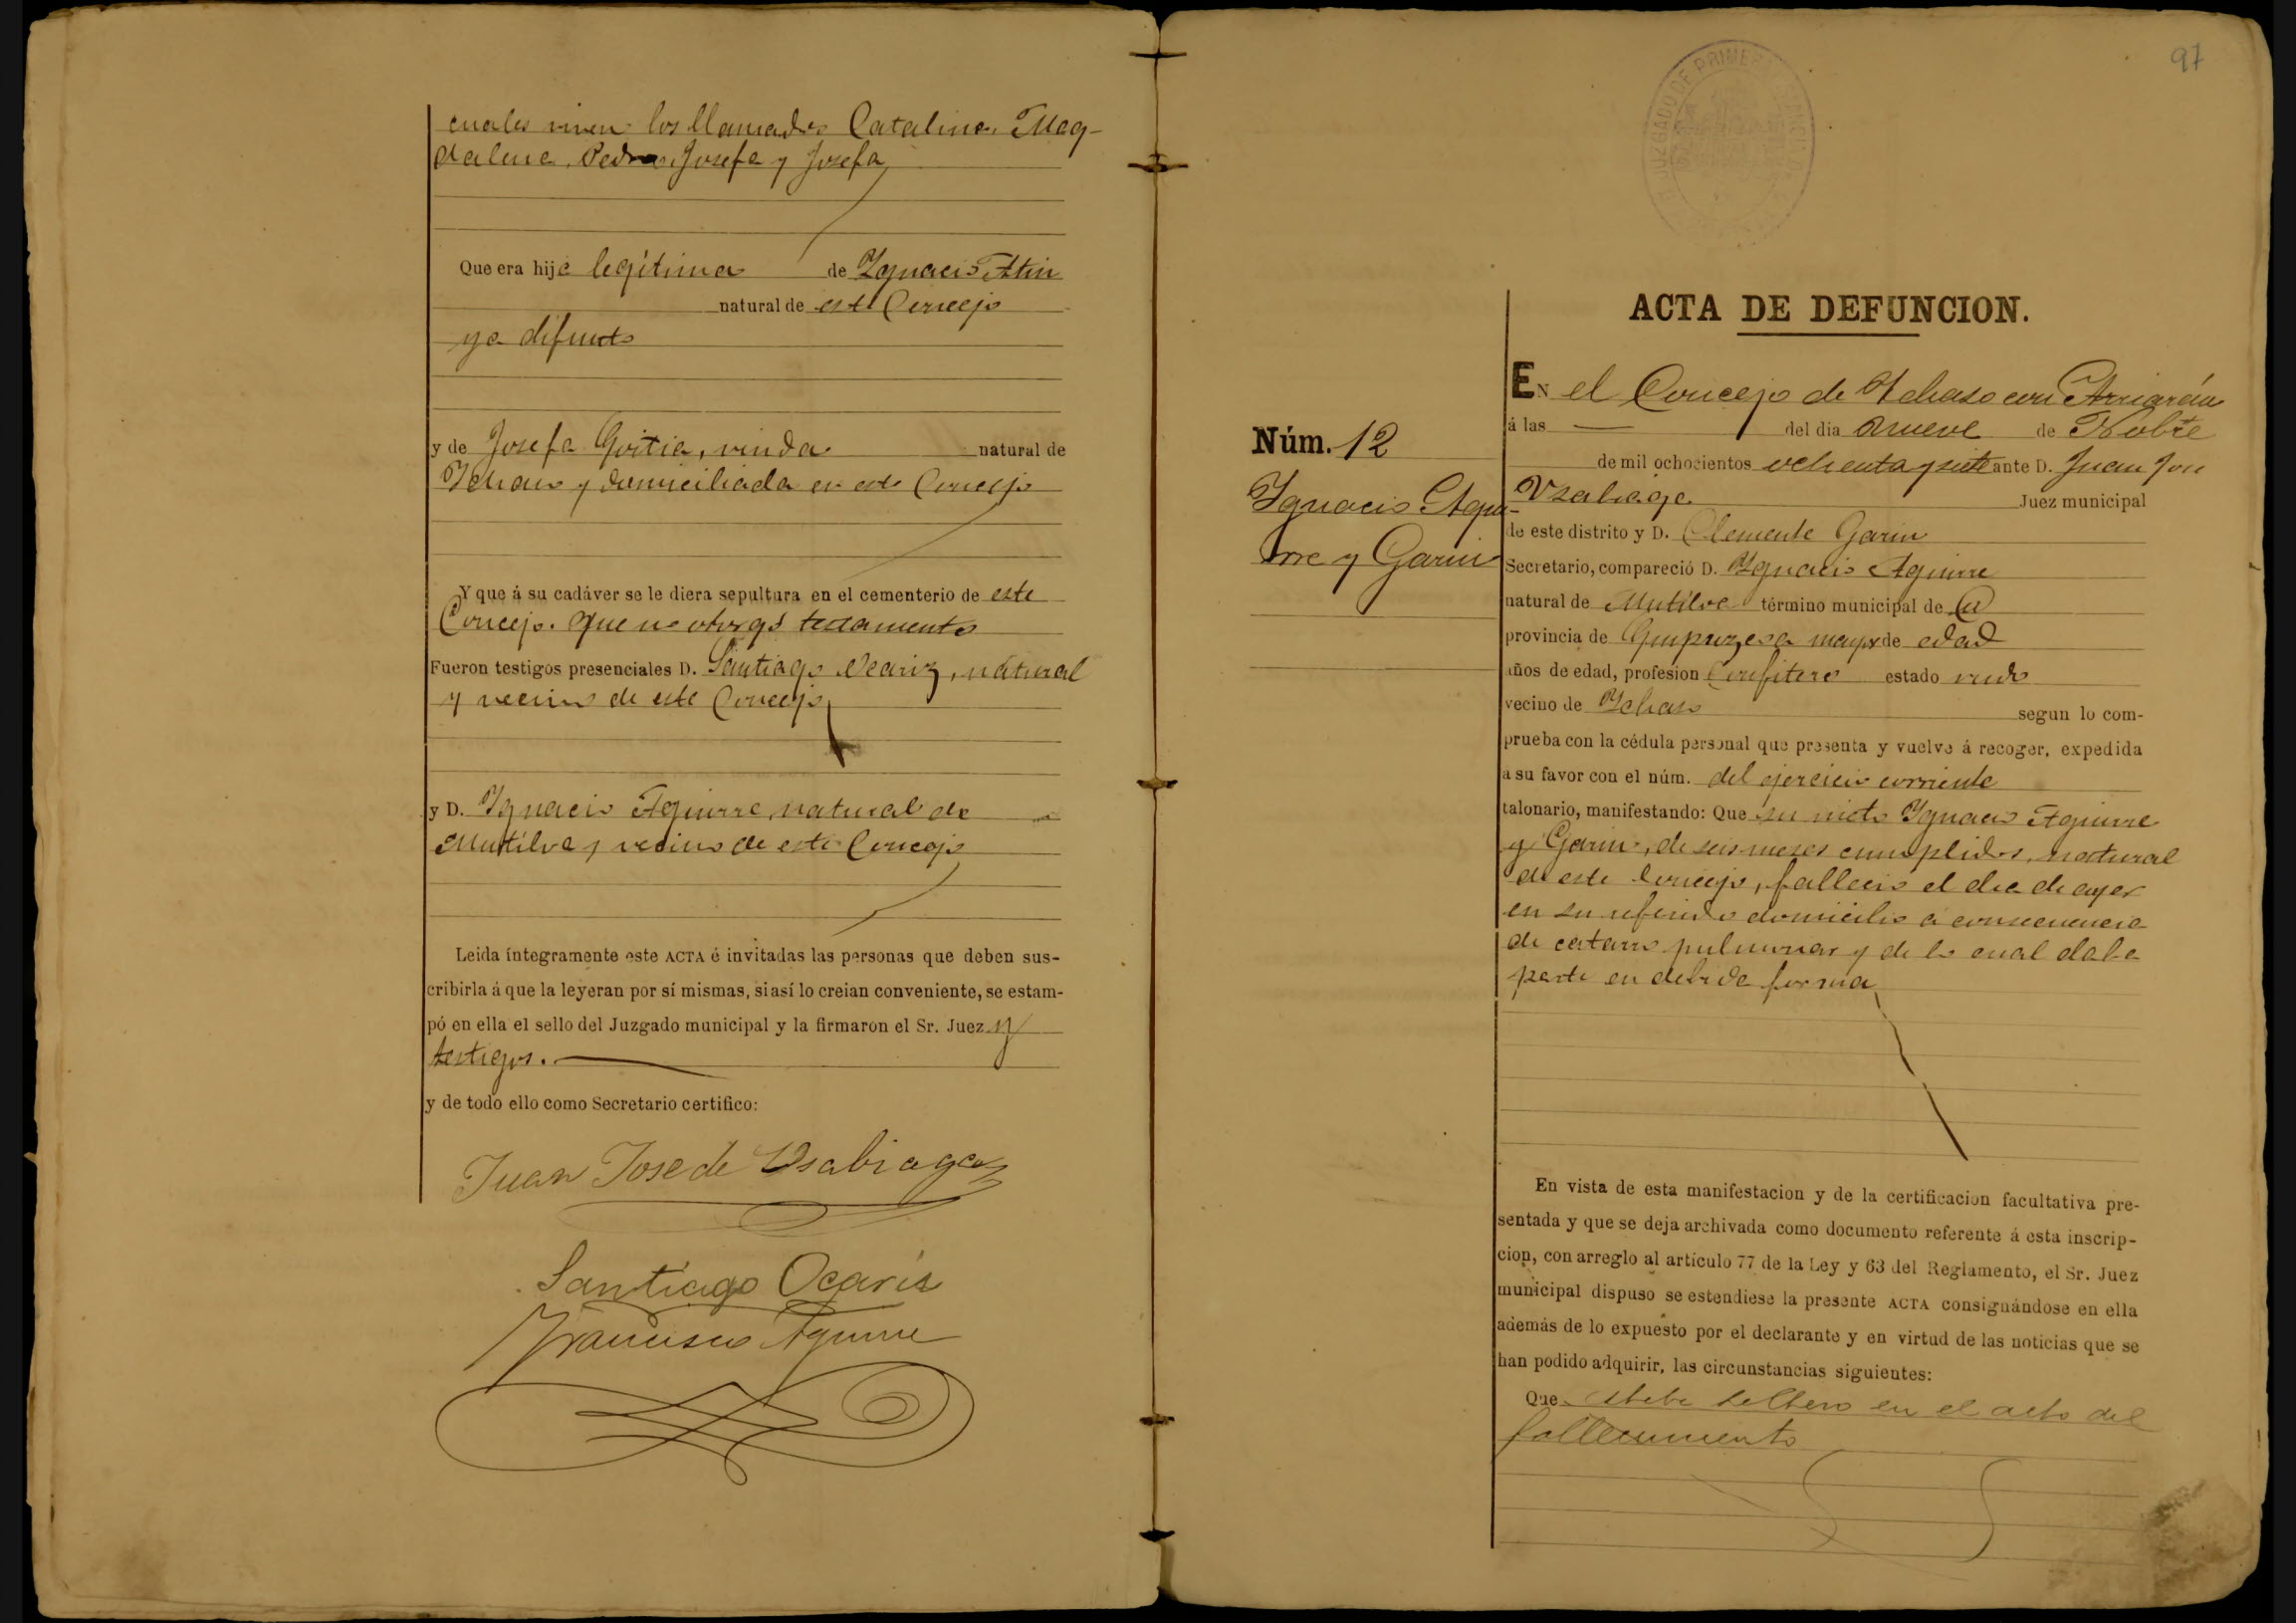 cuales viven los llamados Catalina, Mag-
dalena, Pedro, Josefa y Josefa
Que era hija legítima de Ygnacio Atin
natural de este Concejo
ya difunto
y de Josefa Goitia, viuda natural de
Ychaso y domiciliada en este Concejo
Y que á su cadáver se le diera sepultura en el cementerio de este
Concejo. Que no otorgó testamento
Fueron testigos presenciales D. Santiago Ocariz, natural
y vecino de este Concejo
y D. Ygnacio Aguirre natural de
Mutiloa y vecino de este Concejo
Leida íntegramente este ACTA é invitadas las personas que deben sus-
cribirla á que la leyeran por sí mismas, si así lo creian conveniente, se estam-
pó en ella el sello del Juzgado municipal y la firmaron el Sr. Juez y
testigos.
y de todo ello como Secretario certifico:
Juan Jose de Usabiaga
Santiago Ocariz
Francisco Aguirre
97
JUZGADO DE PRIMERA
ACTA DE DEFUNCION.
Núm. 12
Ygnacio Agui-
rre y Garin
EN el Concejo de Ychaso con Arriarán
á las — del dia nueve de Nobre
de mil ochocientos ochenta y siete ante D. Juan José
Usabiaga Juez municipal
de este distrito y D. Clemente Garin
Secretario, compareció D. Ygnacio Aguirre
natural de Mutiloa término municipal de
provincia de Guipuzcoa mayor de edad
años de edad, profesion Confitero estado viudo
vecino de Ychaso segun lo com-
prueba con la cédula personal que presenta y vuelve á recoger, expedida
a su favor con el núm. del ejercicio corriente
talonario, manifestando: Que su nieto Ygnacio Aguirre
y Garin, de seis meses cumplidos, natural
de este Concejo, falleció el dia de ayer
en su referido domicilio a consecuencia
de catarro pulmonar y de lo cual daba
parte en debida forma
En vista de esta manifestacion y de la certificacion facultativa pre-
sentada y que se deja archivada como documento referente á esta inscrip-
cion, con arreglo al artículo 77 de la Ley y 63 del Reglamento, el Sr. Juez
municipal dispuso se estendiese la presente ACTA consignándose en ella
además de lo expuesto por el declarante y en virtud de las noticias que se
han podido adquirir, las circunstancias siguientes:
Que estaba soltero en el acto del
fallecimiento